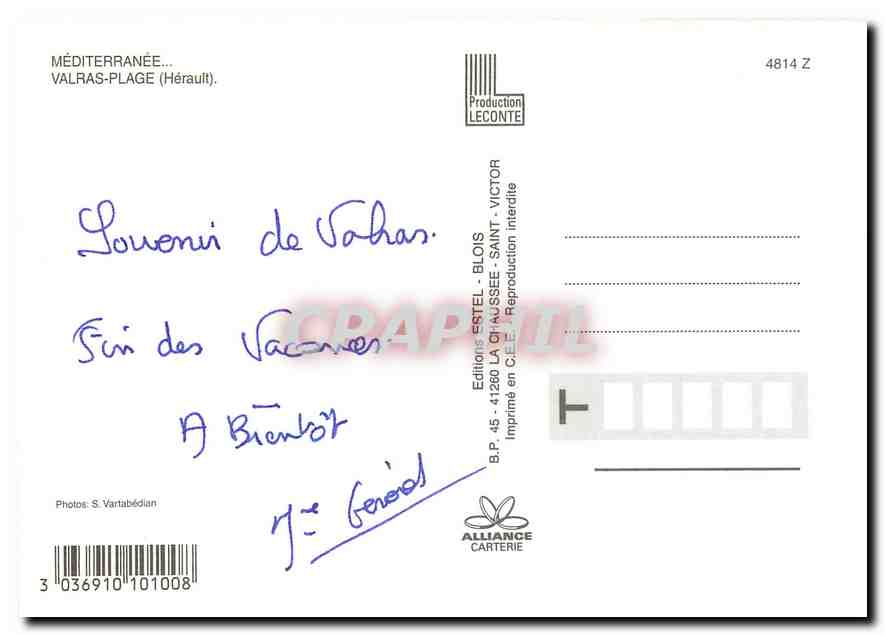 MÉDITERRANÉE...
VALRAS-PLAGE (Hérault).
4814 Z
Production
LECONTE
Souvenir de Valras.
Fin des Vacances.
A Bientôt
Gérard
Photos: S. Vartabédian
3 036910 101008
Editions ESTEL - BLOIS
B.P. 45 - 41260 LA CHAUSSEE - SAINT - VICTOR
Imprimé en C.E.E. Reproduction interdite
T
ALLIANCE
CARTERIE
CPAPHIL